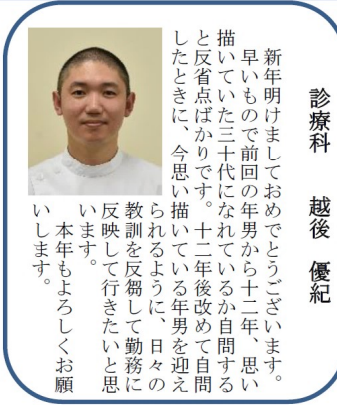 診療科　越後　優紀
　新年明けましておめでとうございます。
　早いもので前回の年男から十二年、思い
描いていた三十代になれているか自問する
と反省点ばかりです。十二年後改めて自問
したときに、今思い描いている年男を迎え
られるように、日々の
教訓を反芻して勤務に
反映して行きたいと思
います。
　本年もよろしくお願
いします。